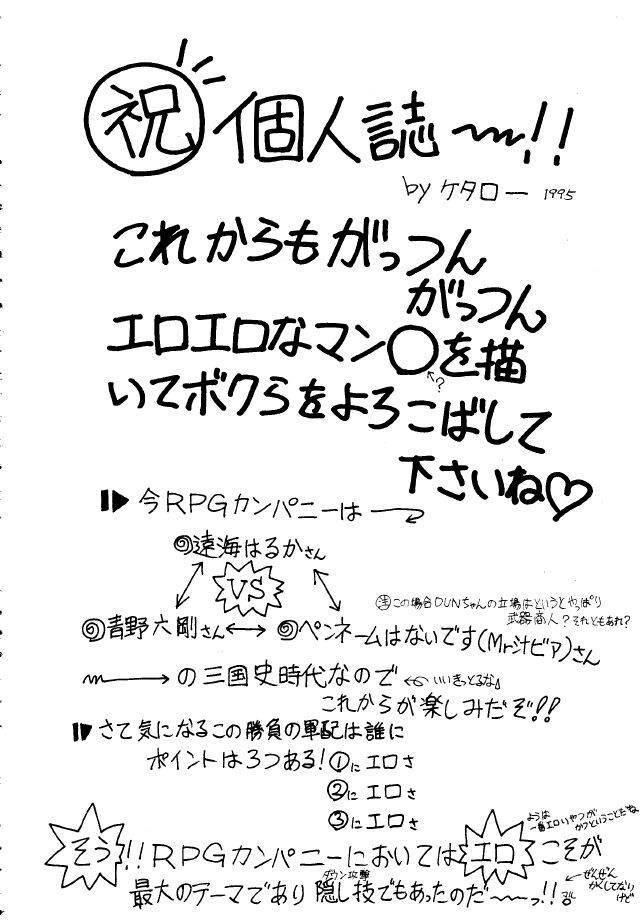 祝 個人誌〜!!
by ケタロー 1995
これからもがっつん
がっつん
エロエロなマン○を描
←?
いてボクらをよろこばして
下さいね♡
今RPGカンパニーは
遠海はるかさん
VS
青野六剛さん ↔ ペンネームはないです(Mr汁ビア)さん
注 この場合DUNちゃんの立場はというとやっぱり
武器商人?それともあれ?
→の三国史時代なので ←いいきっとるな
これからが楽しみだぞ!!
さて気になるこの勝負の軍配は誰に
ポイントは3つある!①にエロさ
②にエロさ
③にエロさ
ようは
一番エロいやつが
かつということだね
そう!!RPGカンパニーにおいてはエロこそが
ダウン攻撃
最大のテーマであり隠し技でもあったのだ〜っ!!
←ぜんぜん
かくしてない
けど